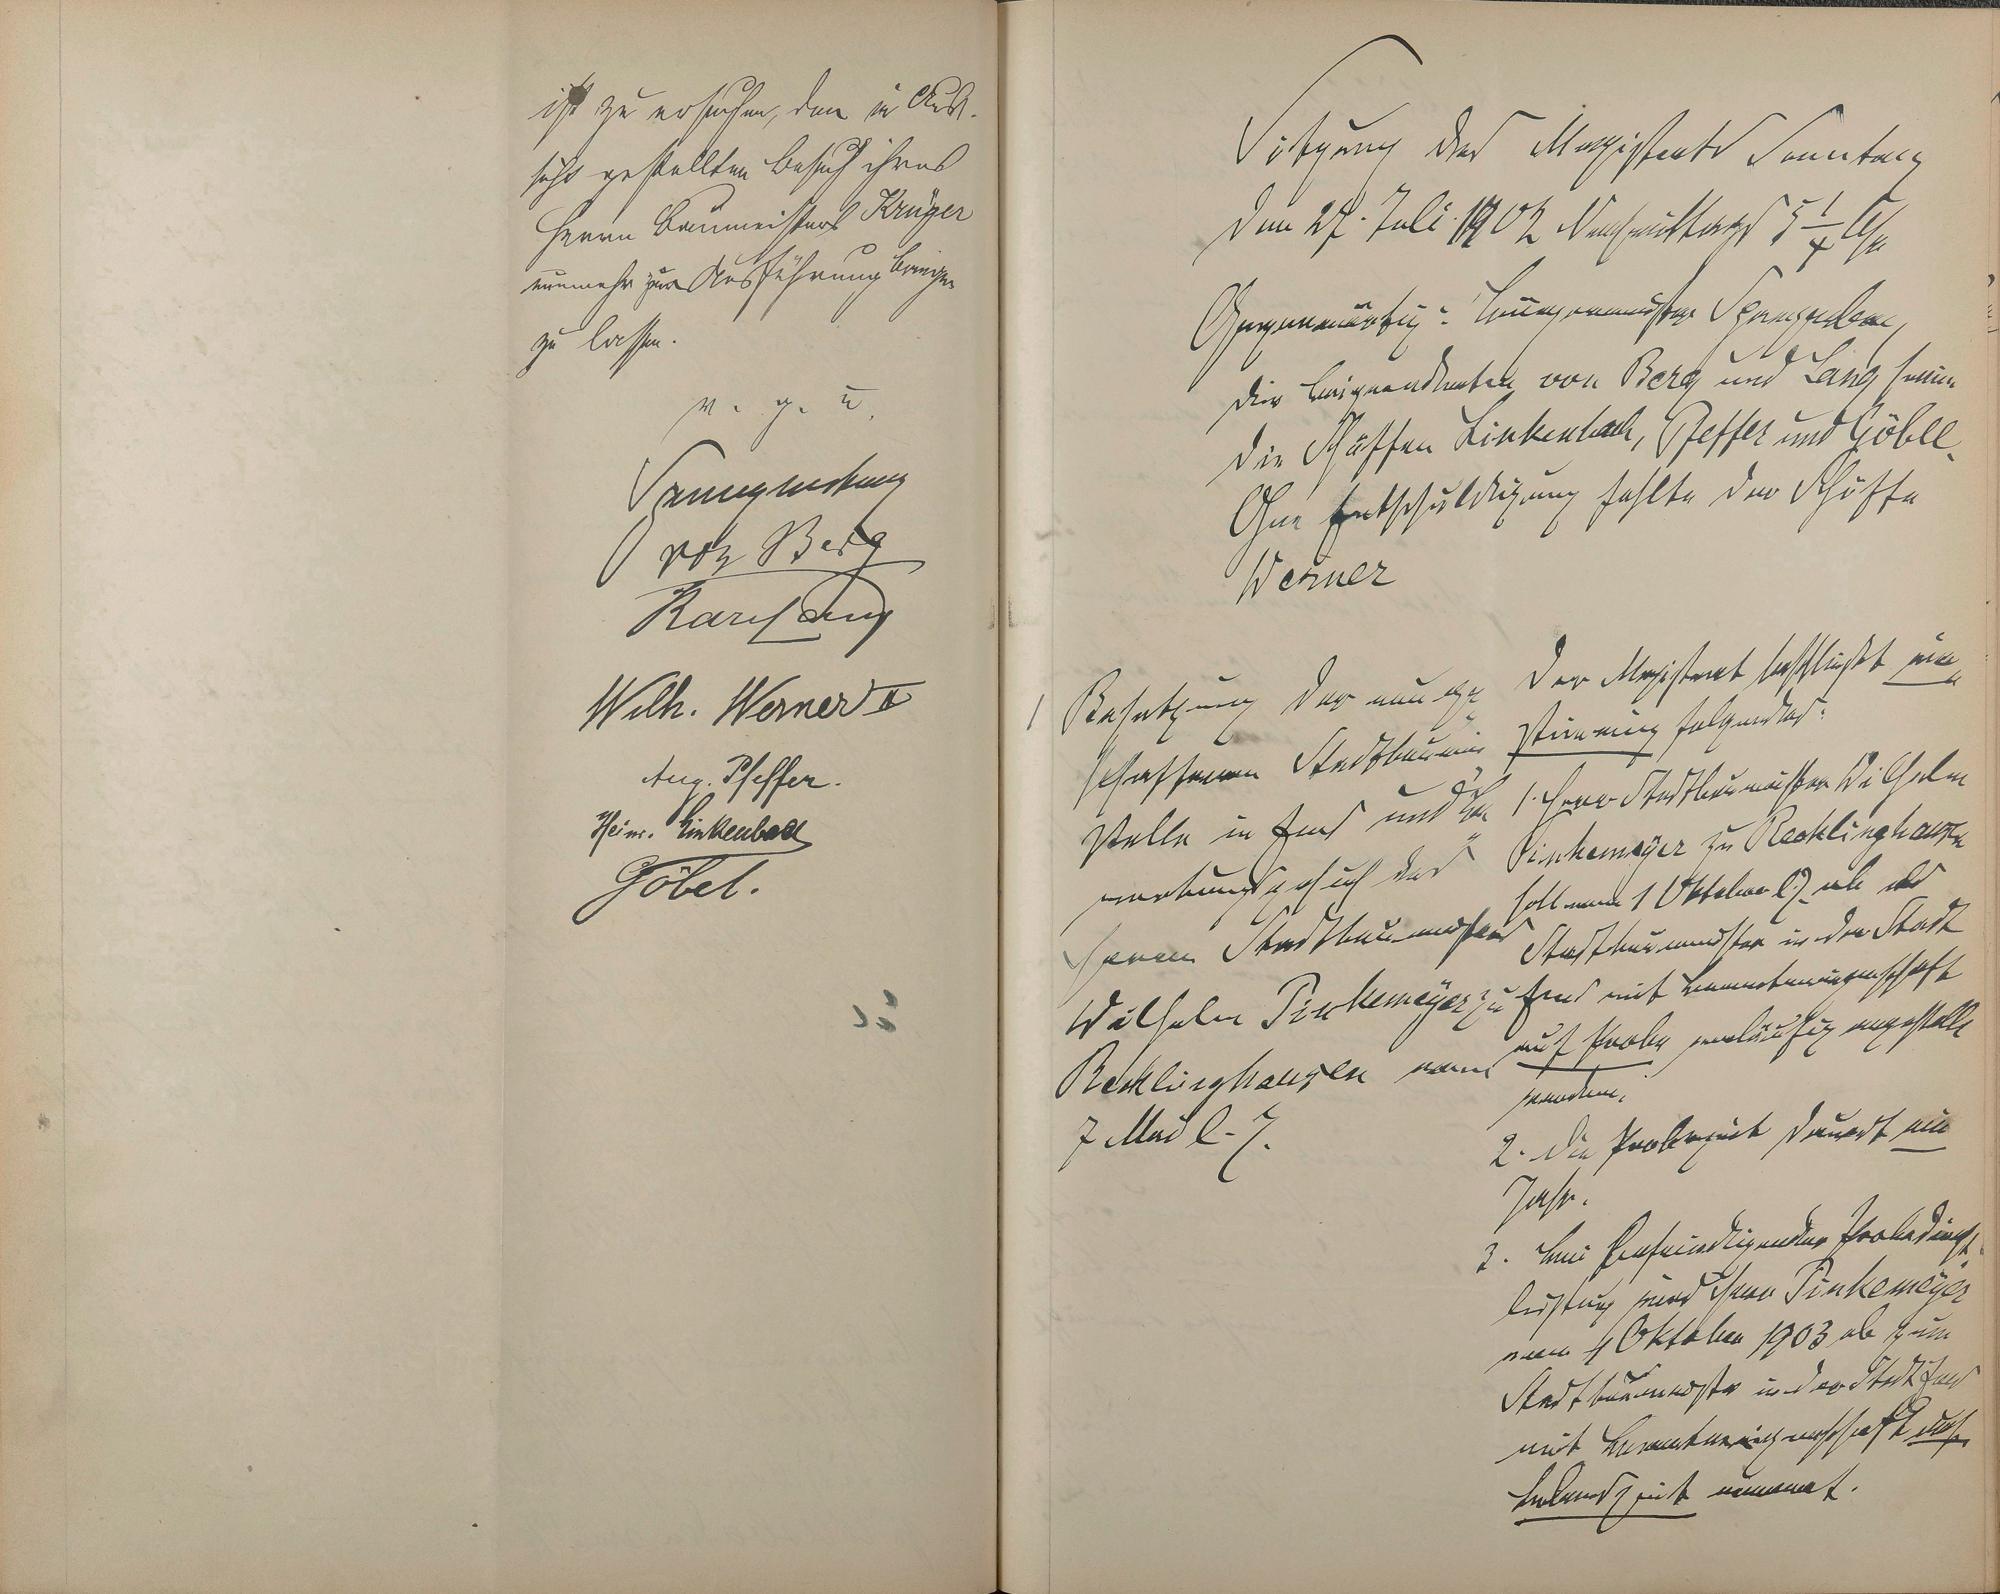 ist zu ersuchen, den in Aus-
sicht gestellten Besuch ihres
Herrn Baumeisters Krüger
nunmehr zur Ausführung bringen
zu lassen.
v. g. u.
von Berg
Karl Lang
Wilh. Werner II
Aug. Pfeffer.
Heinr. Linkenbach
Göbel.
Sitzung des Magistrats Sonntag
den 27. Juli 1902 Nachmittags 5 1/4 Uhr
Gegenwärtig: Bürgermeister
die Beigeordneten von Berg und Lang, ferner
die Schöffen Linkenbach, Pfeffer und Göbel.
Ohne Entschuldigung fehlte der Schöffe
Werner
1 Besetzung der neu ge
schaffenen Stadtbaumeister
Stelle in Ems und Be
werbungsgesuch des
Herrn Stadtbaumeisters
Wilhelm Pinkemeyer zu
Recklinghausen vom
7 Mai l. J.
Der Magistrat beschließt ein
stimmig folgendes:
1. Herr Stadtbaumeister Wilhelm
Pinkemeyer zu Recklinghausen
soll vom 1 Oktober l J. ab als
Stadtbaumeister in der Stadt
Ems mit Beamteneigenschaft
auf Probe vorläufig angestellt
werden.
2. Die Probezeit dauert ein
Jahr.
3. Bei befriedigender Probedienst-
leistung wird Herr Pinkemeyer
vom 1 Oktober 1903 ab zum
Stadtbaumeister in der Stadt Ems
mit Beamteneigenschaft auf
Lebenszeit ernannt.